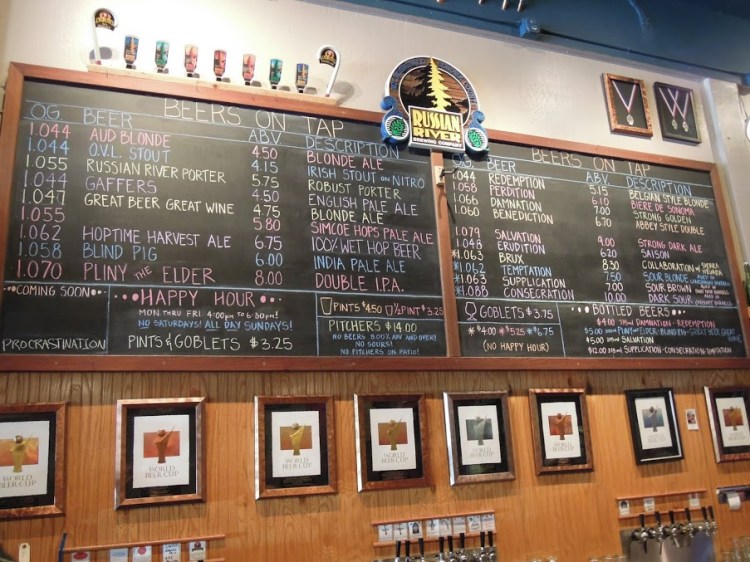 RUSSIAN
RIVER
BREWING COMPANY
BEERS ON TAP
OG BEER ABV DESCRIPTION
1.044 AUD BLONDE 4.50 BLONDE ALE
1.044 O.V.L. STOUT 4.15 IRISH STOUT ON NITRO
1.055 RUSSIAN RIVER PORTER 5.75 ROBUST PORTER
1.044 GAFFERS 4.50 ENGLISH PALE ALE
1.047 GREAT BEER GREAT WINE 4.75 BLONDE ALE
1.055 5.80 SIMCOE HOPS PALE ALE
1.062 HOPTIME HARVEST ALE 6.75 100% WET HOP BEER
1.058 BLIND PIG 6.00 INDIA PALE ALE
1.070 PLINY THE ELDER 8.00 DOUBLE I.P.A.
COMING SOON
PROCRASTINATION
HAPPY HOUR
MON THRU FRI 4:00pm to 6:30pm!
NO SATURDAYS! ALL DAY SUNDAYS!
PINTS & GOBLETS $3.25
PINTS $4.50 ½PINT $3.25
PITCHERS $14.00
NO BEERS 8.00% ABV AND OVER!
NO SOURS!
NO PITCHERS ON PATIO!
BEERS ON TAP
O.G. BEER ABV DESCRIPTION
1.044 REDEMPTION 5.15 BELGIAN STYLE BLONDE
1.058 PERDITION 6.10 BIERE DE SONOMA
1.066 DAMNATION 7.00 STRONG GOLDEN
1.060 BENEDICTION 6.70 ABBEY STYLE DOUBLE
1.079 SALVATION 9.00 STRONG DARK ALE
1.048 ERUDITION 6.20 SAISON
*1.063 BRUX 8.30 COLLABORATION W/ SIERRA NEVADA
*1.062 TEMPTATION 7.50 SOUR BLONDE
*1.063 SUPPLICATION 7.00 SOUR BROWN
*1.088 CONSECRATION 10.00 DARK SOUR
GOBLETS $3.75
*$4.00 *$5.25 *$6.75
(NO HAPPY HOUR)
BOTTLED BEERS
$4.00 DAMNATION - REDEMPTION
$5.00 PLINY THE ELDER - BLIND PIG - GREAT BEER GREAT WINE
$5.00 SALVATION
$12.00 SUPPLICATION - CONSECRATION - TEMPTATION
WORLD BEER CUP
WORLD BEER CUP
WORLD BEER CUP
WORLD BEER CUP
WORLD BEER CUP
WORLD BEER CUP